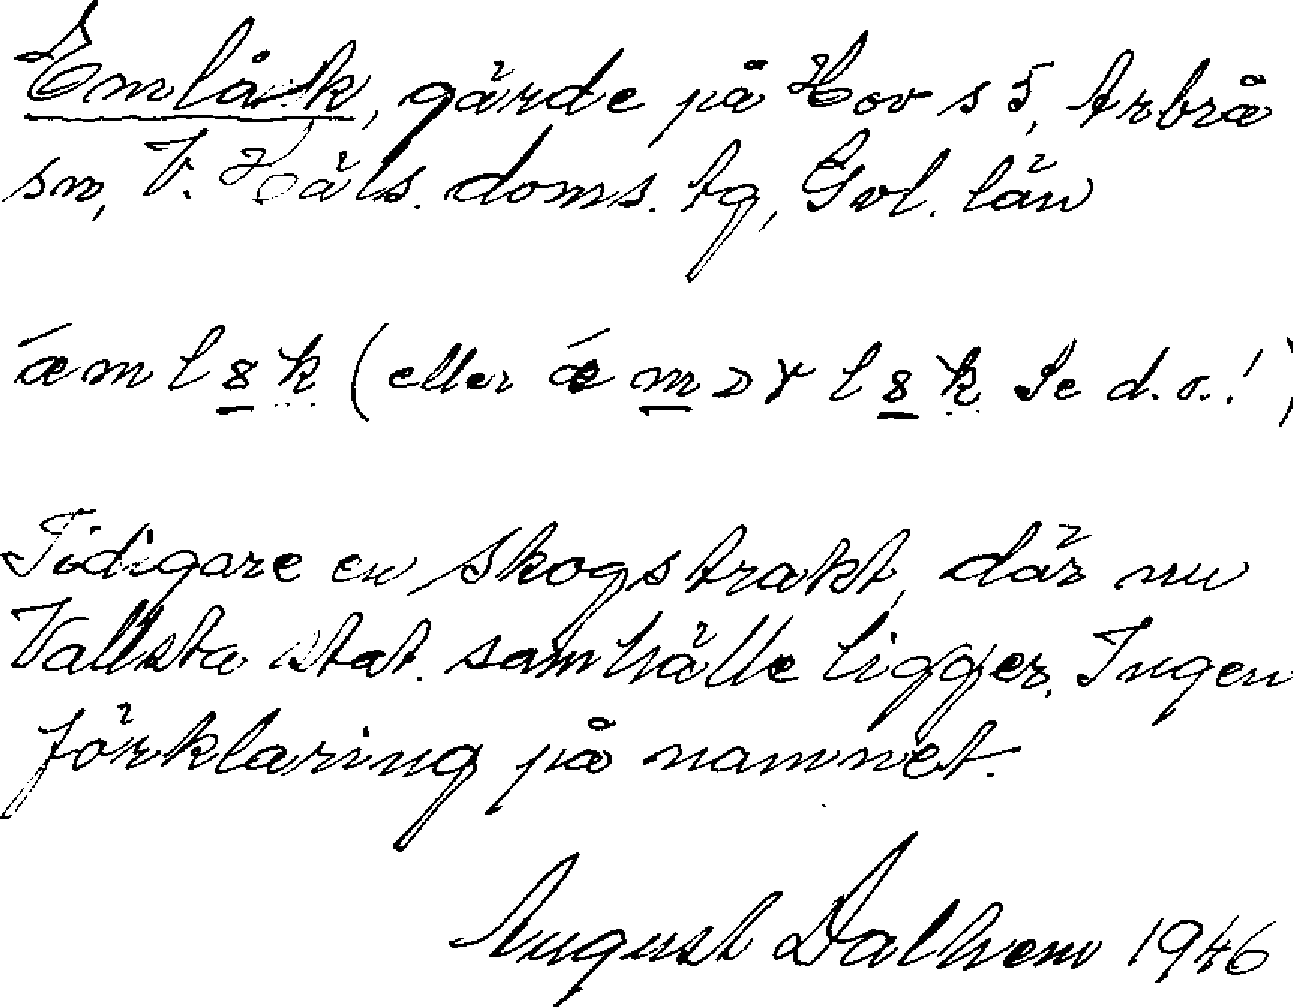 Emlåsk, gärde på Hov s 5, Arbrå
sn, V. Häls. doms. tg, Gvl. län
ǽmlȣk (eller ǽ m l ȣ k Se d.o.!)
Tidigare en skogstrakt, där nu
Vallsta stat. samhälle ligger. Ingen
förklaring på namnet.
August Dalhem 1946